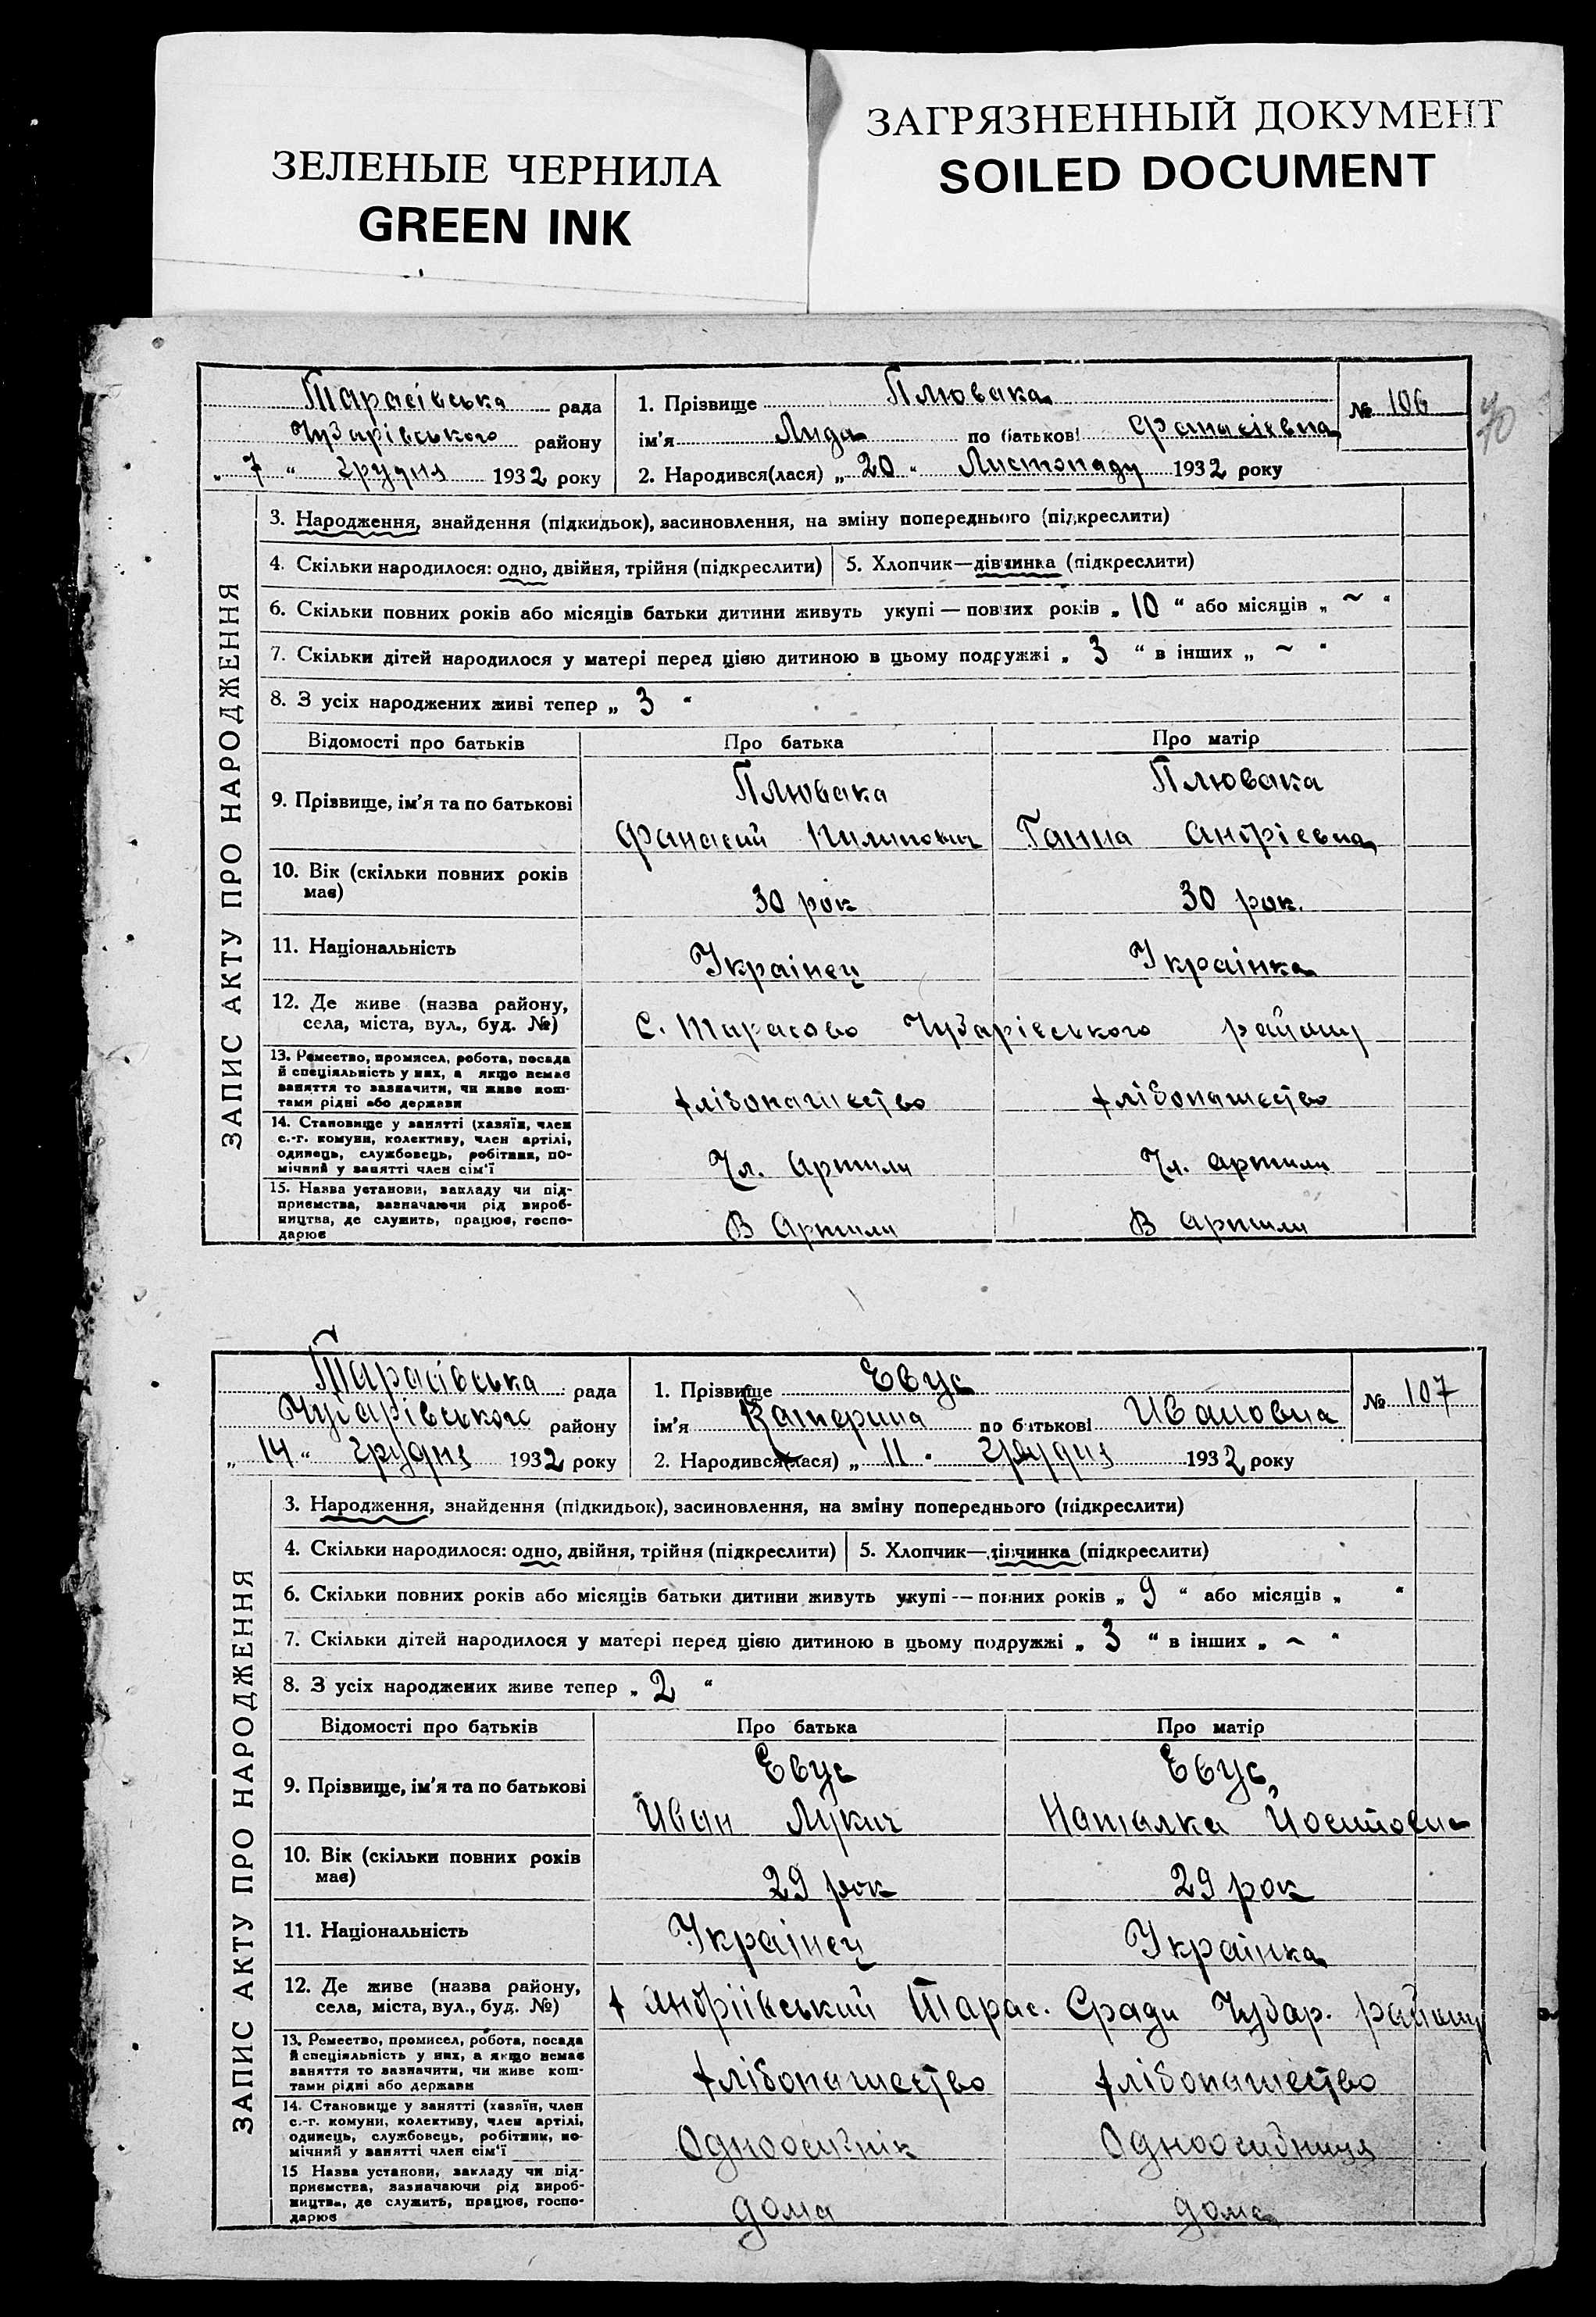 ЗЕЛЕНЫЕ ЧЕРНИЛА
GREEN INK
ЗАГРЯЗНЕННЫЙ ДОКУМЕНТ
SOILED DOCUMENT
70
ЗАПИС АКТУ ПРО НАРОДЖЕННЯ
Тарасівська рада
Чубарівського району
„ 7 “ грудня 1932 року
1. Прізвище Плювака
ім'я Лида по батькові Фанасієвна
№ 106
2. Народився(лася) „ 20 “ Листопаду 1932 року
3. Народження, знайдення (підкидьок), васиновлення, на зміну попереднього (підкреслити)
4. Скільки народилося: одно, двійня, трійня (підкреслити) 5. Хлопчик—дівчинка (підкреслити)
6. Скільки повних років або місяців батьки дитини живуть укупі — повних років „ 10 “ або місяців „ ~ “
7. Скільки дітей народилося у матері перед цією дитиною в цьому подружжі „ 3 “ в інших „ ~ “
8. З усіх народжених живі тепер „ 3 “
Відомості про батьків Про батька Про матір
9. Прізвище, ім'я та по батькові Плювака Плювака
Фанасий Пилипович Ганна Андрієвна
10. Вік (скільки повних років
має) 30 рок 30 рок.
11. Національність Украінец Украінка
12. Де живе (назва району,
села, міста, вул., буд. №) С. Тарасово Чубарівського району
13. Ремество, промисел, робота, посада
й спеціяльність у них, а якщо немає
заняття то зазначити, чи живе кош-
тами рідні або держави хлібопашество хлібопашество
14. Становище у занятті (хазяїн, член
с.-г. комуни, колективу, член артілі,
одинець, службовець, робітник, по-
мічний у занятті член сім'ї Чл. Артили Чл. артили
15. Назва установи, закладу чи під-
приємства, зазначаючи рід вироб-
ництва, де служить, працює, госпо-
дарює В Артили В артили
ЗАПИС АКТУ ПРО НАРОДЖЕННЯ
Тарасівська рада
Чубарівського району
„ 14 “ грудня 1932 року
1. Прізвище Евус
ім'я Катерина по батькові Ивановна
№ 107
2. Народився(лася) „ 11 “ грудня 1932 року
3. Народження, знайдення (підкидьок), засиновлення, на зміну попереднього (підкреслити)
4. Скільки народилося: одно, двійня, трійня (підкреслити) 5. Хлопчик—дівчинка (підкреслити)
6. Скільки повних років або місяців батьки дитини живуть укупі — повних років „ 9 “ або місяців „ “
7. Скільки дітей народилося у матері перед цією дитиною в цьому подружжі „ 3 “ в інших „ ~ “
8. З усіх народжених живе тепер „ 2 “
Відомості про батьків Про батька Про матір
9. Прізвище, ім'я та по батькові Евус Евус
Иван Лукич Наталка
10. Вік (скільки повних років
має) 29 рок 29 рок
11. Національність Украінец Украінка
12. Де живе (назва району,
села, міста, вул., буд. №) х Андріівський Тарас. Сради Чубар. району
13. Ремество, промисел, робота, посада
й спеціяльність у них, а якщо немає
заняття то зазначити, чи живе кош-
тами рідні або держави хлібопашество хлібопашество
14. Становище у занятті (хазяїн, член
с.-г. комуни, колективу, член артілі,
одинець, службовець, робітник, по-
мічний у занятті член сім'ї Одноосибнік Одноосибниця
15 Назва установи, закладу чи під-
приємства, зазначаючи рід вироб-
ництва, де служить, працює, госпо-
дарює дома дома